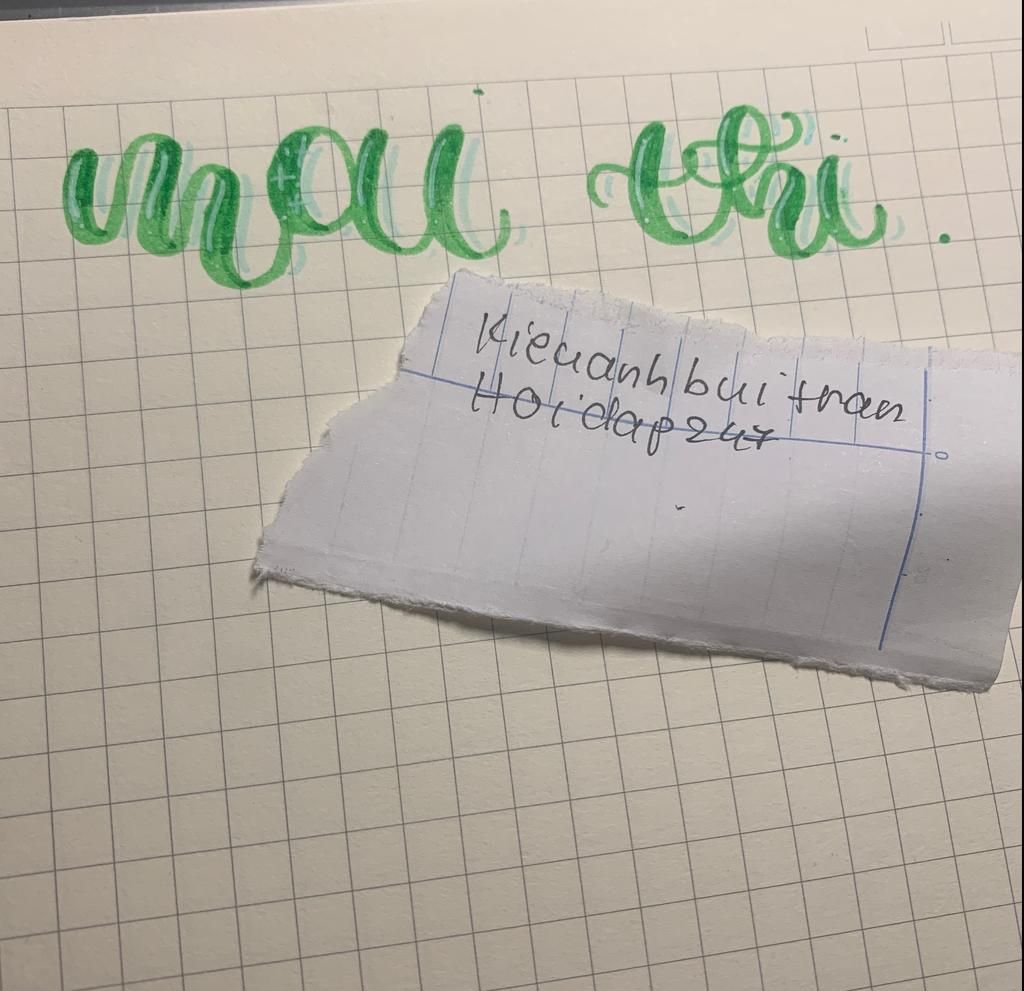 mau thi.
Kieuanhbuitran
Hoidap247